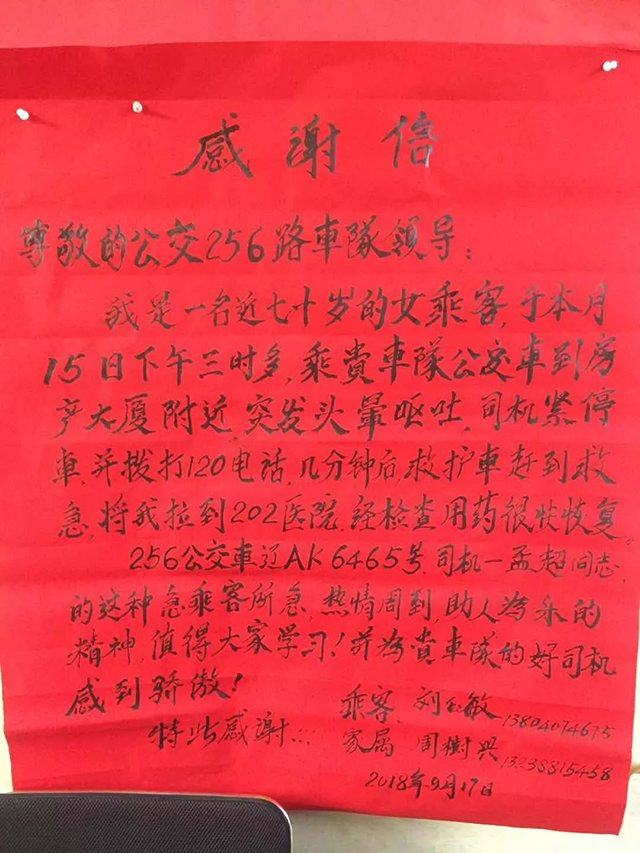 感谢信
尊敬的公交256路車隊领导：
我是一名近七十岁的女乘客，于本月
15日下午三时多，乘貴車隊公交車到房
产大厦附近，突发头暈呕吐，司机紧停
車并拨打120电话，几分钟后，救护車赶到救
急，将我拉到202医院，经检查用药很快恢复
256公交車辽AK6465号，司机一孟超同志，
的这种急乘客所急，热情周到，助人為乐的
精神，值得大家学习！并為貴車隊的好司机
感到骄傲！
乘客 刘 敏 13804074675
特此感谢… 家属 周樹兴 13238815458
2018年9月17日